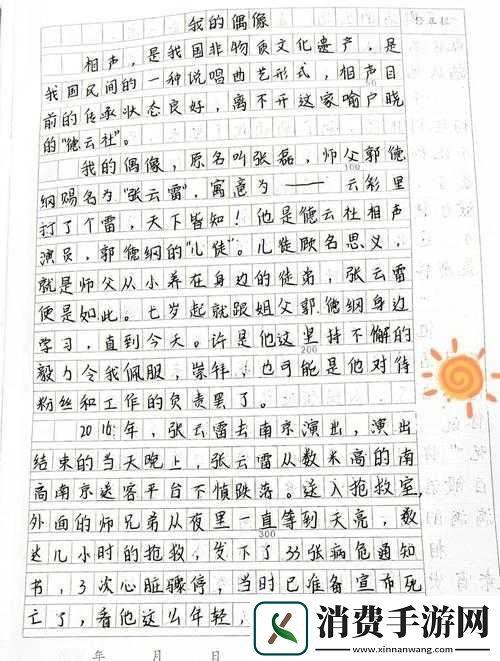 我的偶像
相声，是我国非物质文化遗产，是
我国民间的一种说唱曲艺形式，相声目
前的传承状态良好，离不开这家喻户晓
的"德云社"。
我的偶像，原名叫张磊，师父郭德
纲赐名为"张云雷"，寓意为——云彩里
100
打了个雷，天下皆知！他是德云社相声
演员，郭德纲的"儿徒"。儿徒顾名思义，
就是师父从小养在身边的徒弟，张云雷
便是如此。七岁起就跟姐父郭德纲身边
学习，直到今天。许是他这坚持不懈的
200
毅力令我佩服，崇拜，也可能是他对待
粉丝和工作的负责罢了。
2016年，张云雷去南京演出，演出
结束的当天晚上，张云雷从数米高的南
高南京送客平台下慎跌落。送入抢救室，
外面的师兄弟从夜里一直等到天亮，数
300
达几小时的抢救，发下了33张病危通知
书，3次心脏骤停，当时已准备宣布死
亡了，看他这么年轻，
年 月 日
消费手游网
www.xinnanwang.com